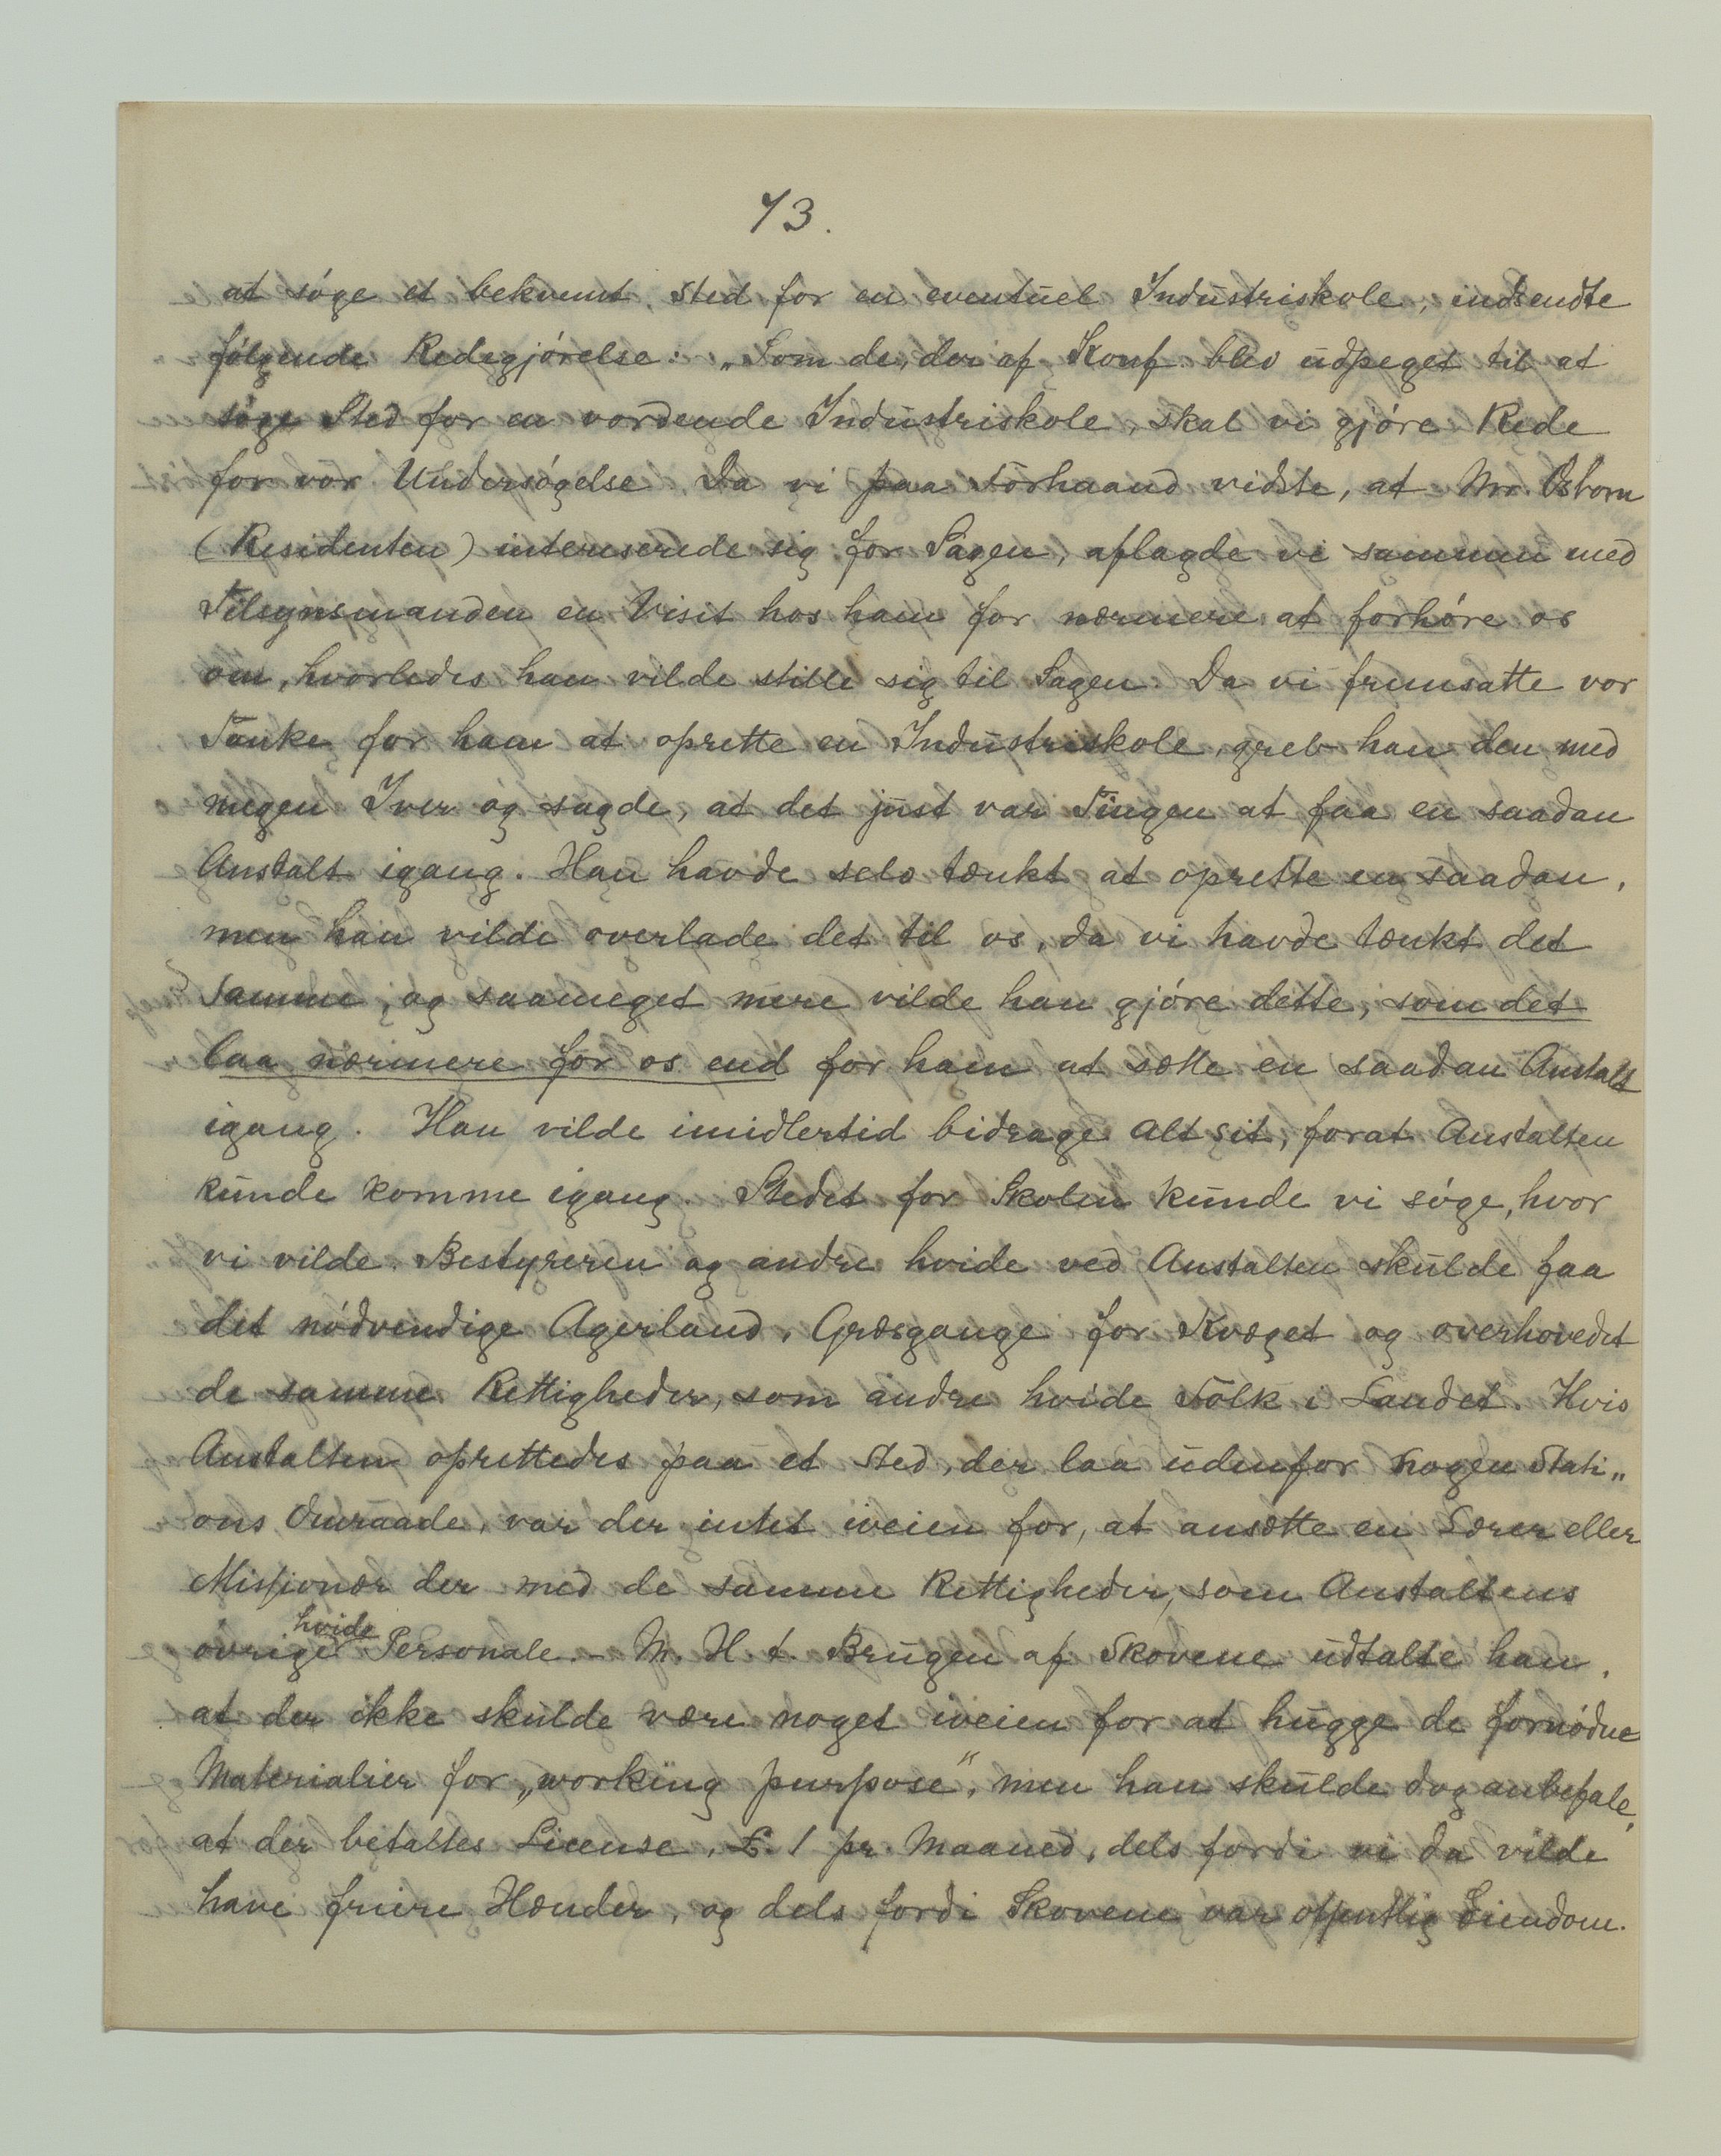 73.
at søge et bekvemt Sted for en eventuel Industriskole, indsendte
følgende Redegjørelse: „Som de, der af Konf. blev udpeget til at
søge Sted for en vordende Industriskole, skal vi gjøre Rede
for vor Undersøgelse. Da vi paa Forhaand vidste, at Mr. Osborn
(Residenten) interesserede sig for Sagen, aflagde vi sammen med
Tilsynsmanden en Visit hos ham for nærmere at forhøre os
om, hvorledes han vilde stille sig til Sagen. Da vi fremsatte vor
Tanke for ham at oprette en Industriskole, greb han den med
megen Iver og sagde, at det just var Tingen at faa en saadan
Anstalt igang. Han havde selv tænkt at oprette en saadan,
men han vilde overlade det til os, da vi havde tænkt det
samme, og saameget mere vilde han gjøre dette, som det
laa nærmere for os end for ham at sætte en saadan Anstalt
igang. Han vilde imidlertid bidrage alt sit, forat Anstalten
kunde komme igang. Stedet for Skolen kunde vi søge, hvor
vi vilde. Bestyreren og andre hvide ved Anstalten skulde faa
det nødvendige Agerland, Græsgange for Kvæget og overhovedet
de samme Rettigheder, som andre hvide Folk i Landet. Hvis
Anstalten oprettedes paa et Sted, der laa udenfor nogen Stati„
ons Omraade, var der intet iveien for, at ansætte en Lærer eller
Missionær der med de samme Rettigheder, som Anstaltens
øvrige hvide Personale. – M. H. t. Brugen af Skovene udtalte han,
at der ikke skulde være noget iveien for at hugge de fornødne
Materialier for „working purpose“, men han skulde dog anbefale,
at der betaltes License, £. 1 pr. Maaned, dels fordi vi da vilde
have friere Hænder, og dels fordi Skovene var offentlig Eiendom.